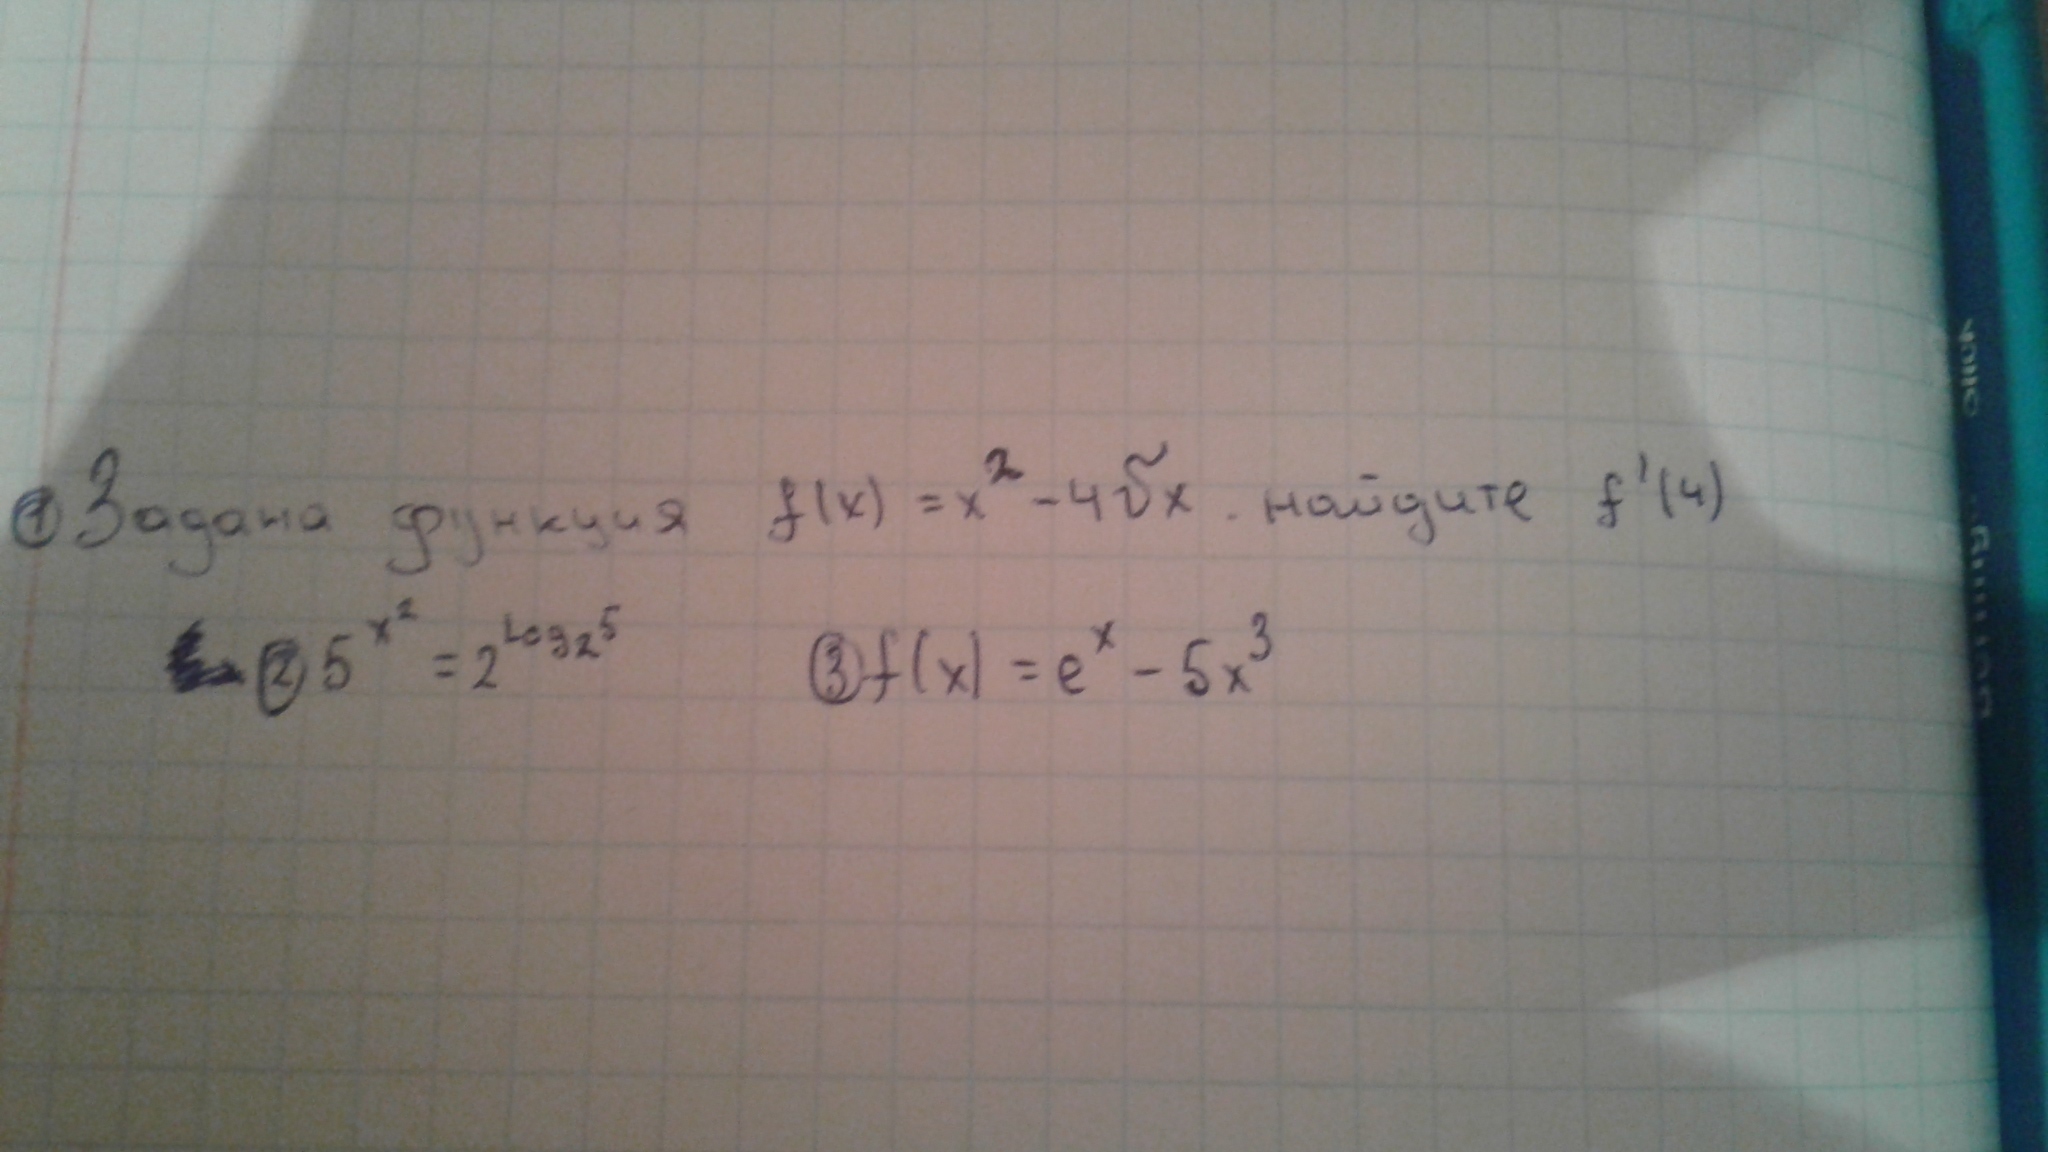 ① Задана функция f(x) = x² - 4√x . найдите f'(4)
② 5^x² = 2^log₂5 ③ f(x) = e^x - 5x³